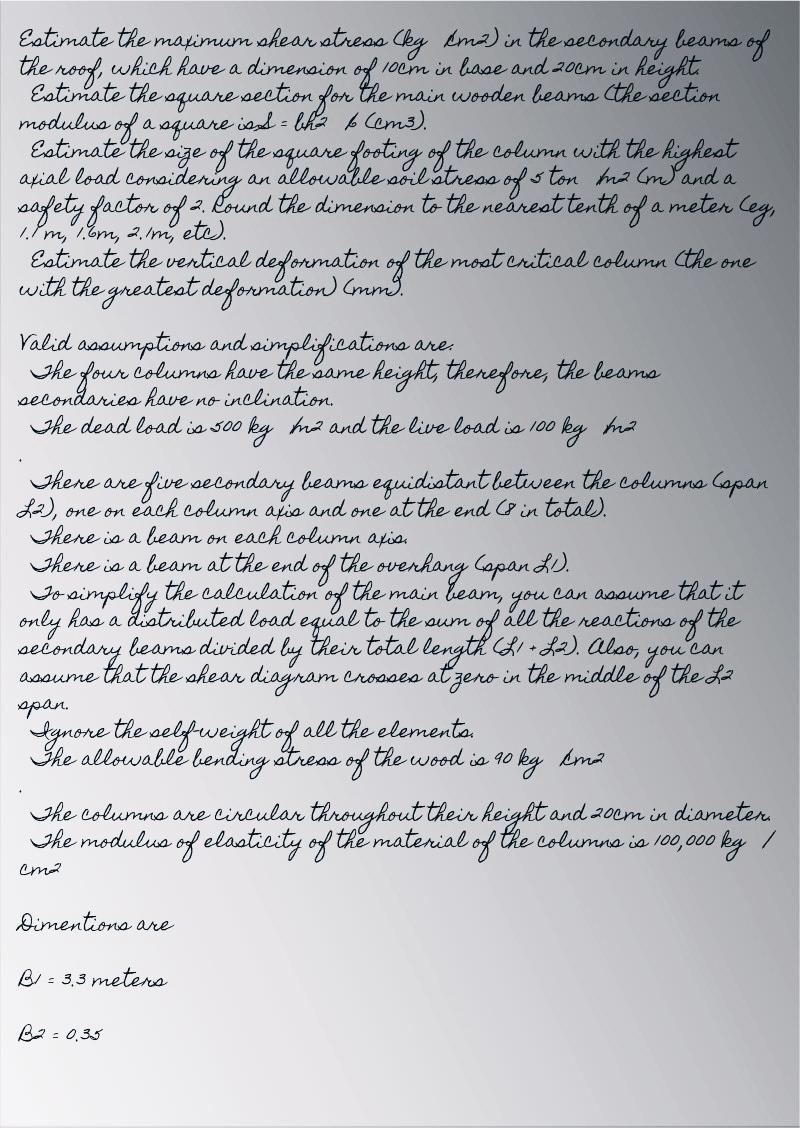 Estimate the maximum shear stress (kg /cm2) in the secondary beams of
the roof, which have a dimension of 10cm in base and 20cm in height.
Estimate the square section for the main wooden beams (the section
modulus of a square is S = bh2 /6 (cm3).
Estimate the size of the square footing of the column with the highest
axial load considering an allowable soil stress of 5 ton /m2 (m) and a
safety factor of 2. Round the dimension to the nearest tenth of a meter (eg,
1.1 m, 1.6m, 2.1m, etc).
Estimate the vertical deformation of the most critical column (the one
with the greatest deformation) (mm).
Valid assumptions and simplifications are:
The four columns have the same height, therefore, the beams
secondaries have no inclination.
The dead load is 500 kg /m2 and the live load is 100 kg /m2
.
There are five secondary beams equidistant between the columns (span
L2), one on each column axis and one at the end (8 in total).
There is a beam on each column axis.
There is a beam at the end of the overhang (span L1).
To simplify the calculation of the main beam, you can assume that it
only has a distributed load equal to the sum of all the reactions of the
secondary beams divided by their total length (L1 + L2). Also, you can
assume that the shear diagram crosses at zero in the middle of the L2
span.
Ignore the self-weight of all the elements.
The allowable bending stress of the wood is 90 kg /cm2
.
The columns are circular throughout their height and 20cm in diameter.
The modulus of elasticity of the material of the columns is 100,000 kg /
cm2
Dimentions are
B1 = 3.3 meters
B2 = 0.35